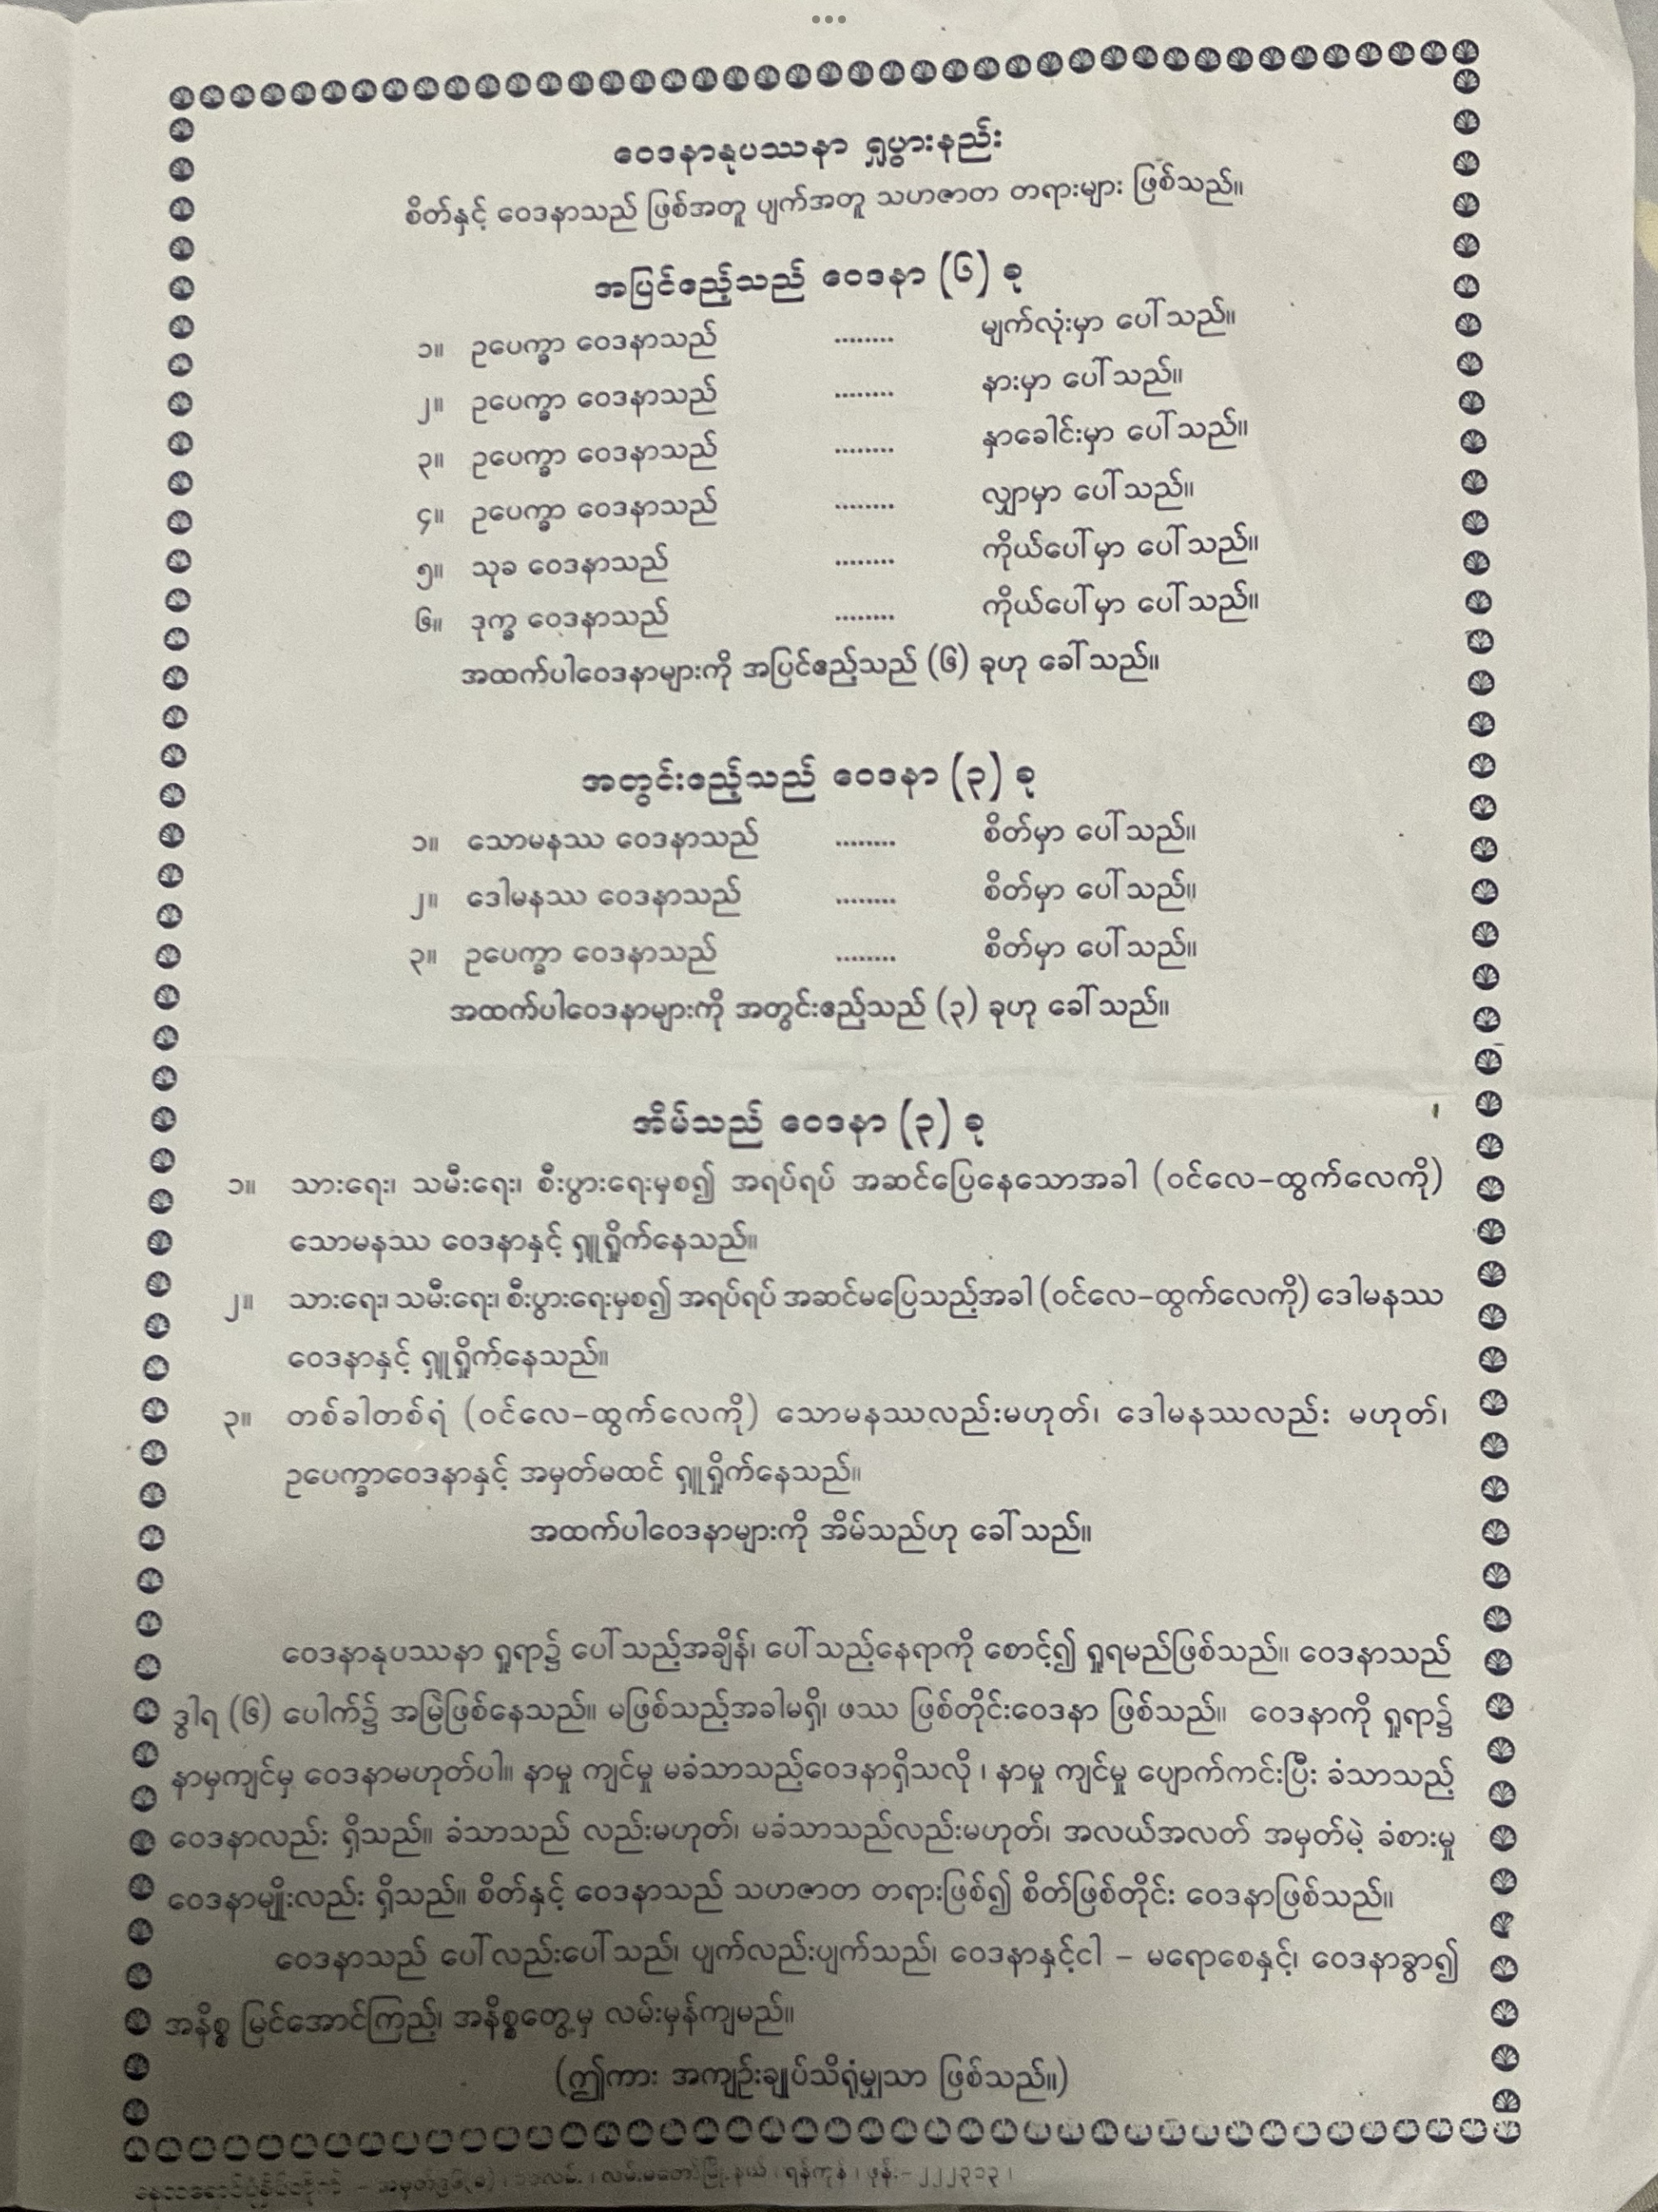 ဝေဒနာနုပဿနာ ရှုပွားနည်း
စိတ်နှင့် ဝေဒနာသည် ဖြစ်အတူ ပျက်အတူ သဟဇာတ တရားများ ဖြစ်သည်။
အပြင်ဧည့်သည် ဝေဒနာ (၆) ခု
၁။ ဥပေက္ခာ ဝေဒနာသည် ........ မျက်လုံးမှာ ပေါ်သည်။
၂။ ဥပေက္ခာ ဝေဒနာသည် ........ နားမှာ ပေါ်သည်။
၃။ ဥပေက္ခာ ဝေဒနာသည် ........ နှာခေါင်းမှာ ပေါ်သည်။
၄။ ဥပေက္ခာ ဝေဒနာသည် ........ လျှာမှာ ပေါ်သည်။
၅။ သုခ ဝေဒနာသည် ........ ကိုယ်ပေါ်မှာ ပေါ်သည်။
၆။ ဒုက္ခ ဝေဒနာသည် ........ ကိုယ်ပေါ်မှာ ပေါ်သည်။
အထက်ပါဝေဒနာများကို အပြင်ဧည့်သည် (၆) ခုဟု ခေါ်သည်။
အတွင်းဧည့်သည် ဝေဒနာ (၃) ခု
၁။ သောမနဿ ဝေဒနာသည် ........ စိတ်မှာ ပေါ်သည်။
၂။ ဒေါမနဿ ဝေဒနာသည် ........ စိတ်မှာ ပေါ်သည်။
၃။ ဥပေက္ခာ ဝေဒနာသည် ........ စိတ်မှာ ပေါ်သည်။
အထက်ပါဝေဒနာများကို အတွင်းဧည့်သည် (၃) ခုဟု ခေါ်သည်။
အိမ်သည် ဝေဒနာ (၃) ခု
၁။ သားရေး၊ သမီးရေး၊ စီးပွားရေးမှစ၍ အရပ်ရပ် အဆင်ပြေနေသောအခါ (ဝင်လေ–ထွက်လေကို)
သောမနဿ ဝေဒနာနှင့် ရှူရှိုက်နေသည်။
၂။ သားရေး၊ သမီးရေး၊ စီးပွားရေးမှစ၍ အရပ်ရပ် အဆင်မပြေသည့်အခါ (ဝင်လေ–ထွက်လေကို) ဒေါမနဿ
ဝေဒနာနှင့် ရှူရှိုက်နေသည်။
၃။ တစ်ခါတစ်ရံ (ဝင်လေ–ထွက်လေကို) သောမနဿလည်းမဟုတ်၊ ဒေါမနဿလည်း မဟုတ်၊
ဥပေက္ခာဝေဒနာနှင့် အမှတ်မထင် ရှူရှိုက်နေသည်။
အထက်ပါဝေဒနာများကို အိမ်သည်ဟု ခေါ်သည်။
ဝေဒနာနုပဿနာ ရှုရာ၌ ပေါ်သည့်အချိန်၊ ပေါ်သည့်နေရာကို စောင့်၍ ရှုရမည်ဖြစ်သည်။ ဝေဒနာသည်
ဒွါရ (၆) ပေါက်၌ အမြဲဖြစ်နေသည်။ မဖြစ်သည့်အခါမရှိ၊ ဖဿ ဖြစ်တိုင်းဝေဒနာ ဖြစ်သည်။ ဝေဒနာကို ရှုရာ၌
နာမှကျင်မှ ဝေဒနာမဟုတ်ပါ။ နာမှု ကျင်မှု မခံသာသည့်ဝေဒနာရှိသလို ၊ နာမှု ကျင်မှု ပျောက်ကင်းပြီး ခံသာသည့်
ဝေဒနာလည်း ရှိသည်။ ခံသာသည် လည်းမဟုတ်၊ မခံသာသည်လည်းမဟုတ်၊ အလယ်အလတ် အမှတ်မဲ့ ခံစားမှု
ဝေဒနာမျိုးလည်း ရှိသည်။ စိတ်နှင့် ဝေဒနာသည် သဟဇာတ တရားဖြစ်၍ စိတ်ဖြစ်တိုင်း ဝေဒနာဖြစ်သည်။
ဝေဒနာသည် ပေါ်လည်းပေါ်သည်၊ ပျက်လည်းပျက်သည်၊ ဝေဒနာနှင့်ငါ – မရောစေနှင့်၊ ဝေဒနာခွာ၍
အနိစ္စ မြင်အောင်ကြည့်၊ အနိစ္စတွေ့မှ လမ်းမှန်ကျမည်။
(ဤကား အကျဉ်းချုပ်သိရုံမျှသာ ဖြစ်သည်။)
လမ်းမတော်မြို့နယ် ၊ ရန်ကုန် ၊ ဖုန်း–၂၂၂၃၁၃ ၊